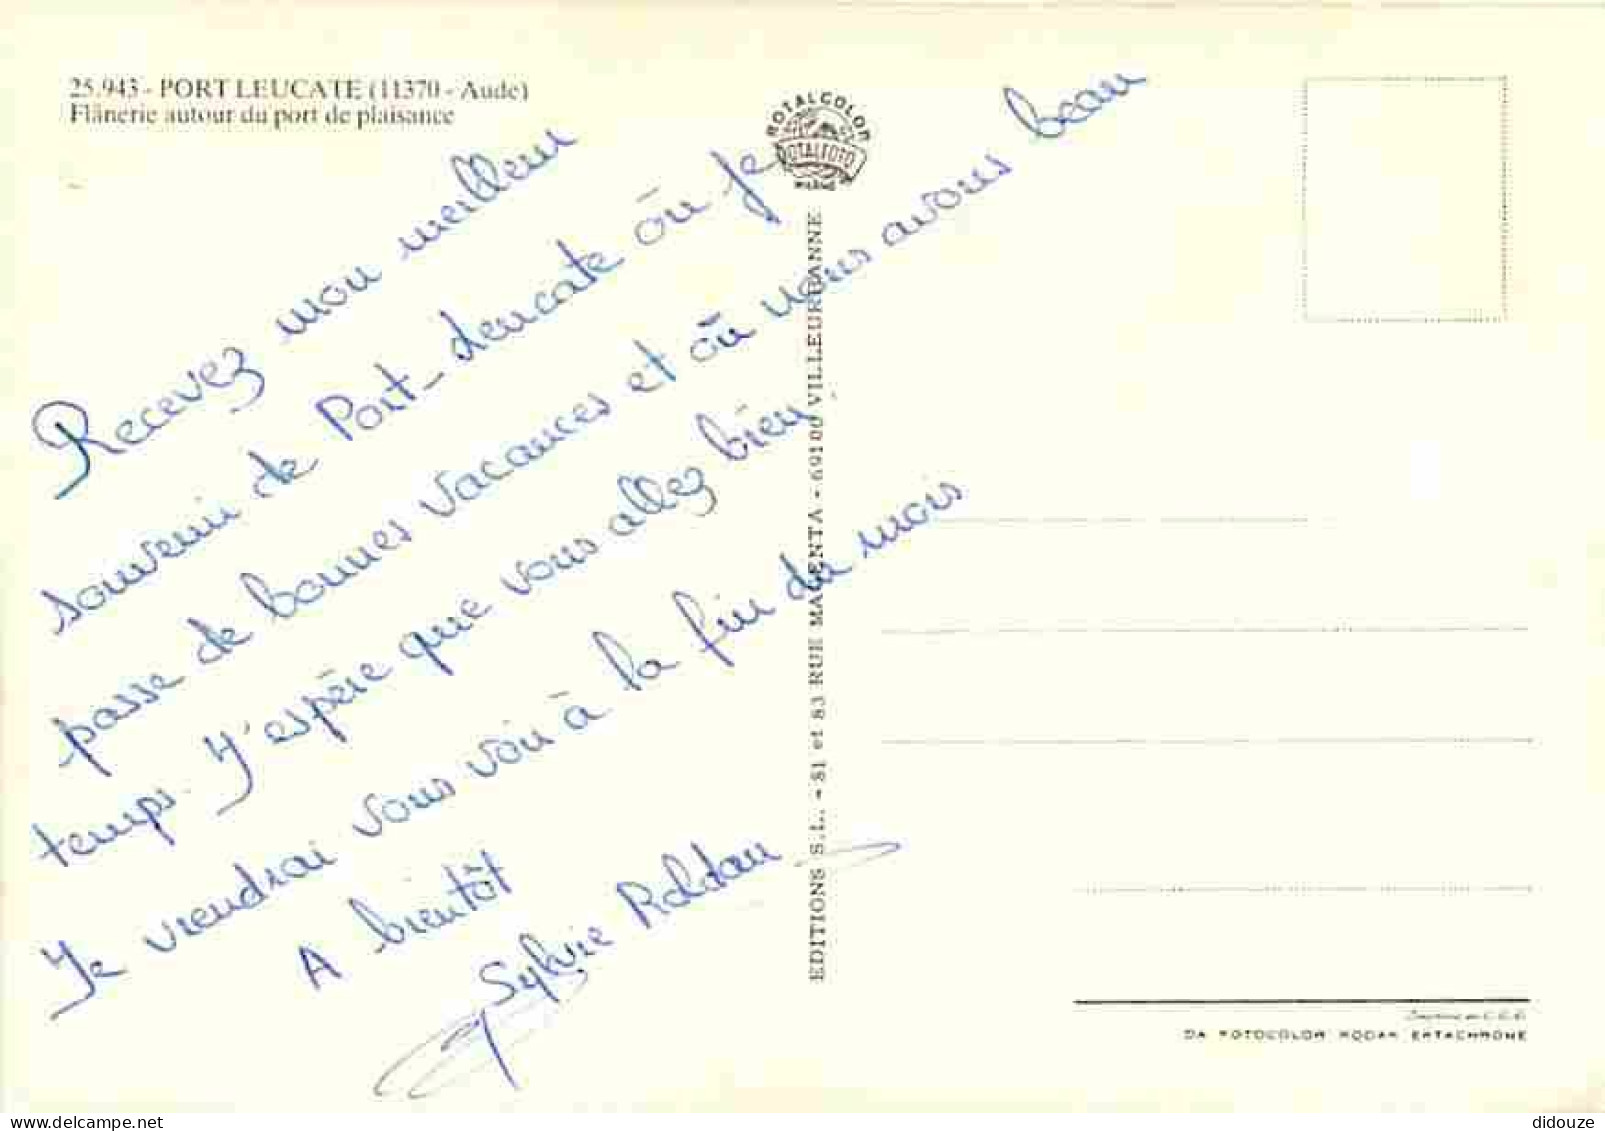 25.943 - PORT LEUCATE (11370 - Aude)
Flânerie autour du port de plaisance
Recevez mon meilleur
souvenir de Port-Leucate où je
passe de bonnes vacances et où nous avons beau
temps. J'espère que vous allez bien.
Je viendrai vous voir à la fin du mois
A bientôt
Sylvie Roldan
ROTALCOLOR
ROTALFOTO
MILANO
EDITIONS S.L. - 81 et 83 RUE MAGENTA - 69100 VILLEURBANNE
DA FOTOCOLOR KODAK EKTACHROME
delcampe.net
didouze